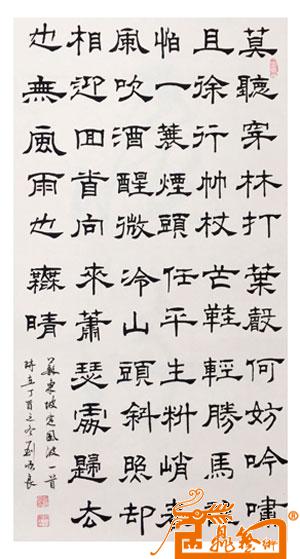 莫聽穿林打葉聲何妨吟嘯
且徐行竹杖芒鞵輕勝馬誰
怕一蓑煙任平生料峭春
風吹酒醒微冷山頭斜照却
相迎回首向來蕭瑟處歸去
也無風雨也無晴
蘇東坡定風波一首
時在丁酉之冬劉